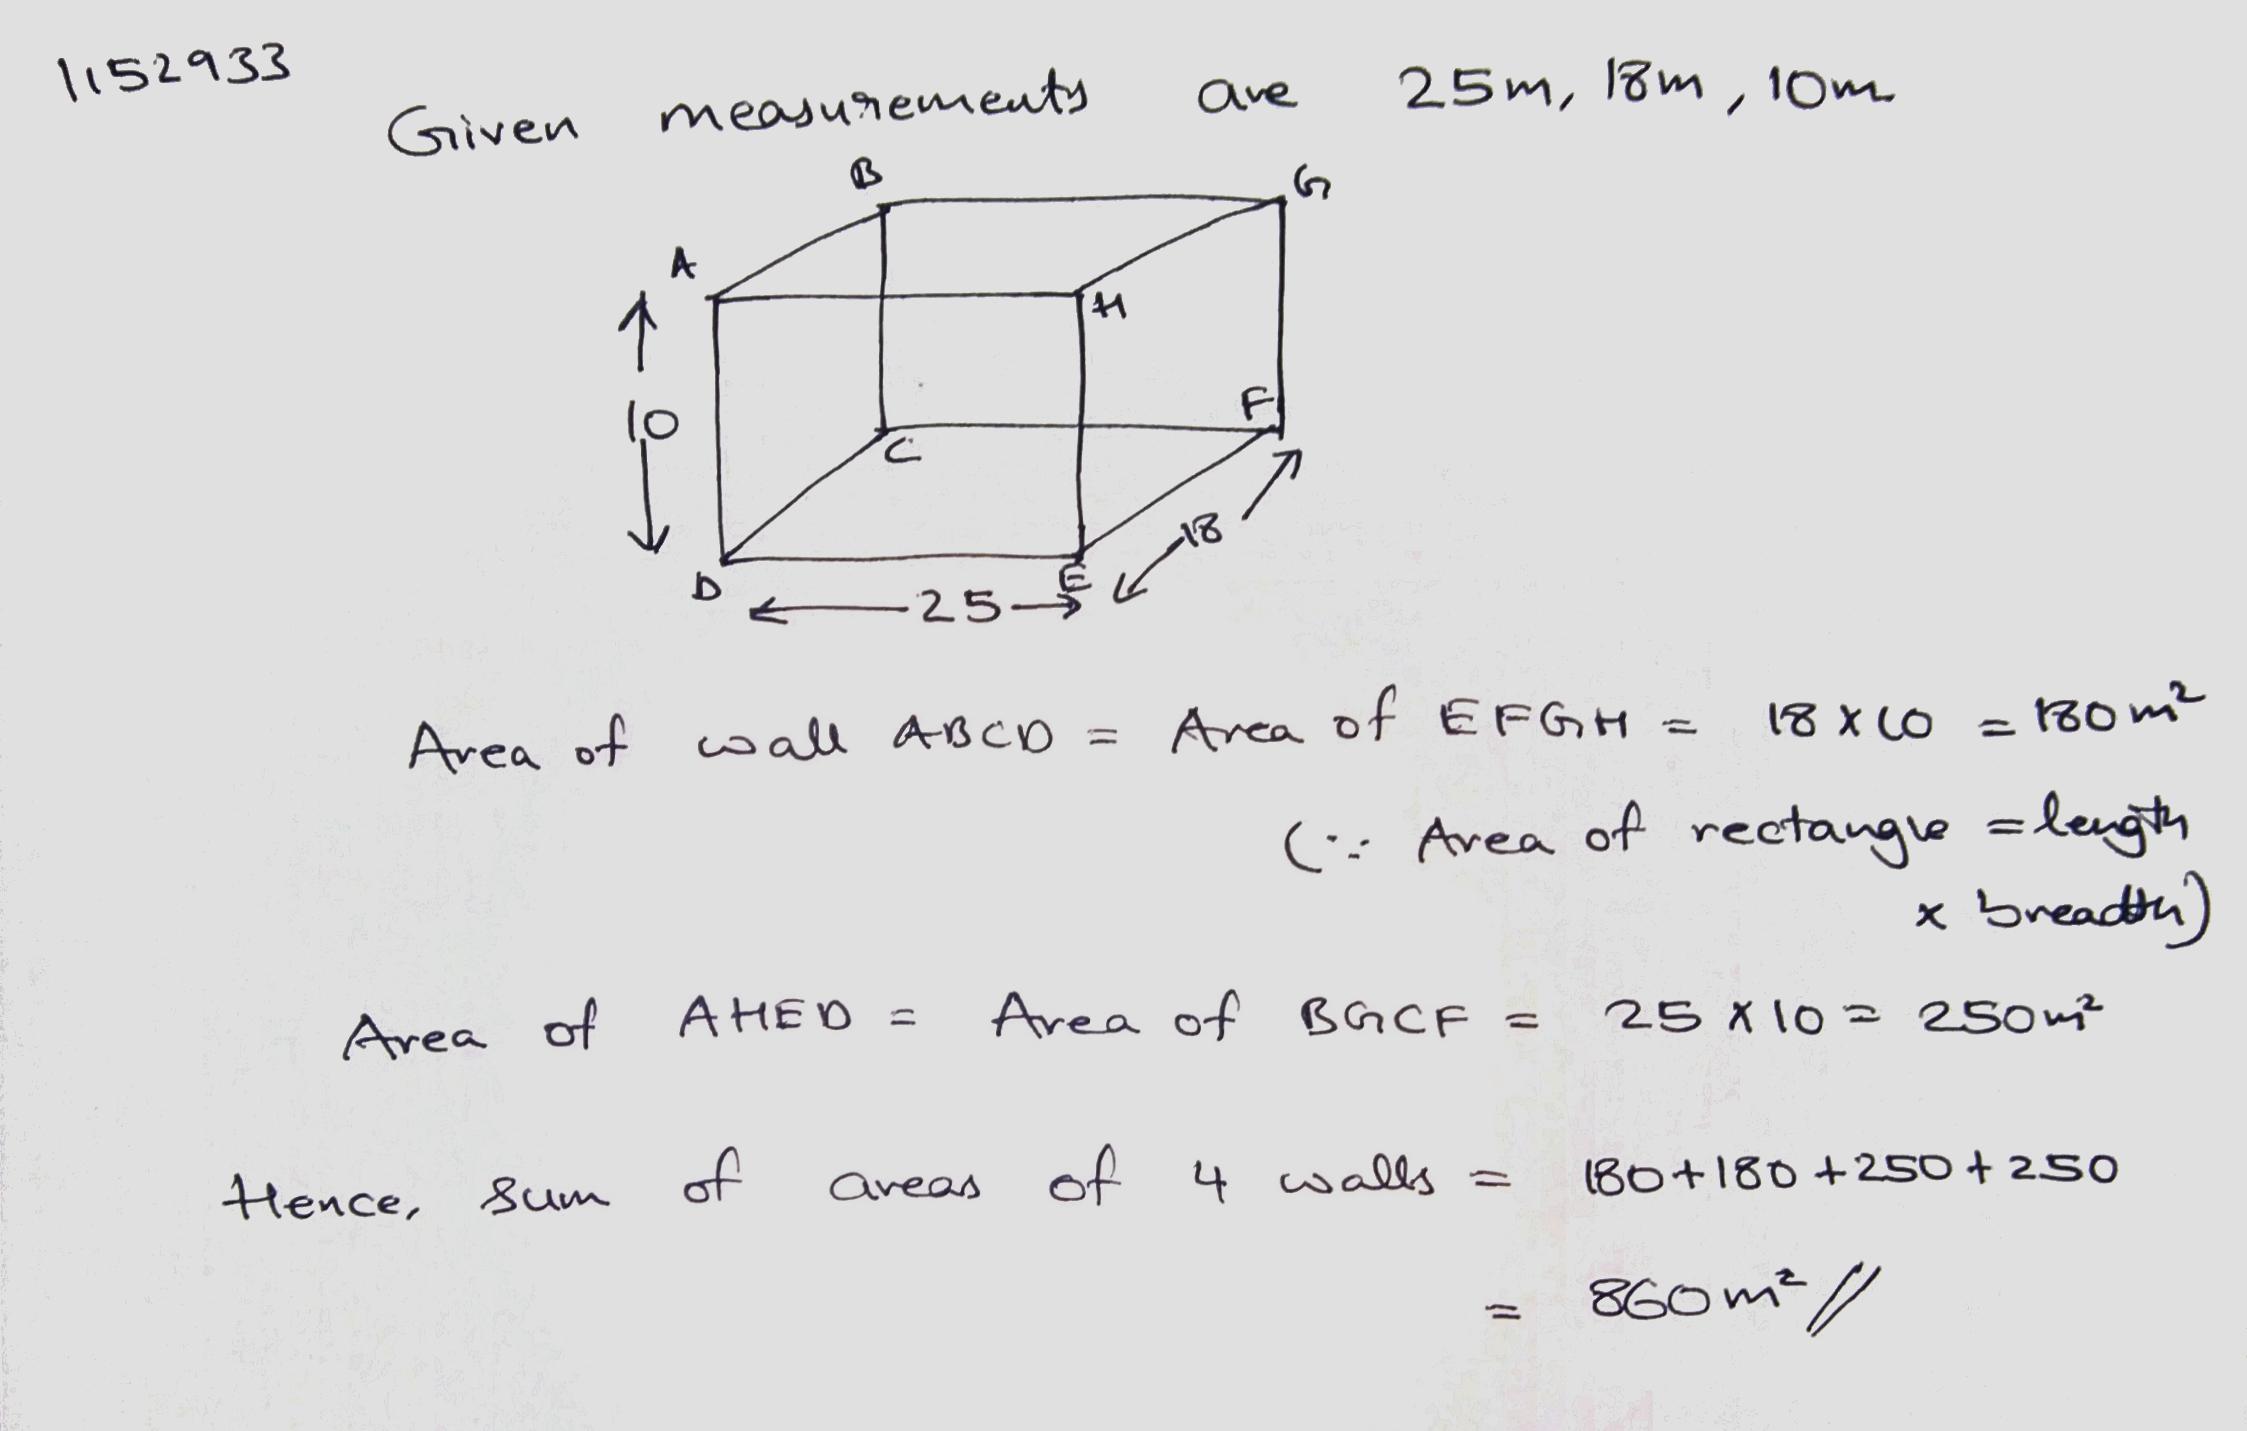 1152933
Given measurements are 25m, 18m, 10m
B
G
A
H
10
F
C
18
D
E
25
Area of wall ABCD = Area of EFGH = 18 x 10 = 180 m²
(∵ Area of rectangle = length
x breadth)
Area of AHED = Area of BGCF = 25 x 10 = 250m²
Hence, sum of areas of 4 walls = 180+180+250+250
= 860 m² //